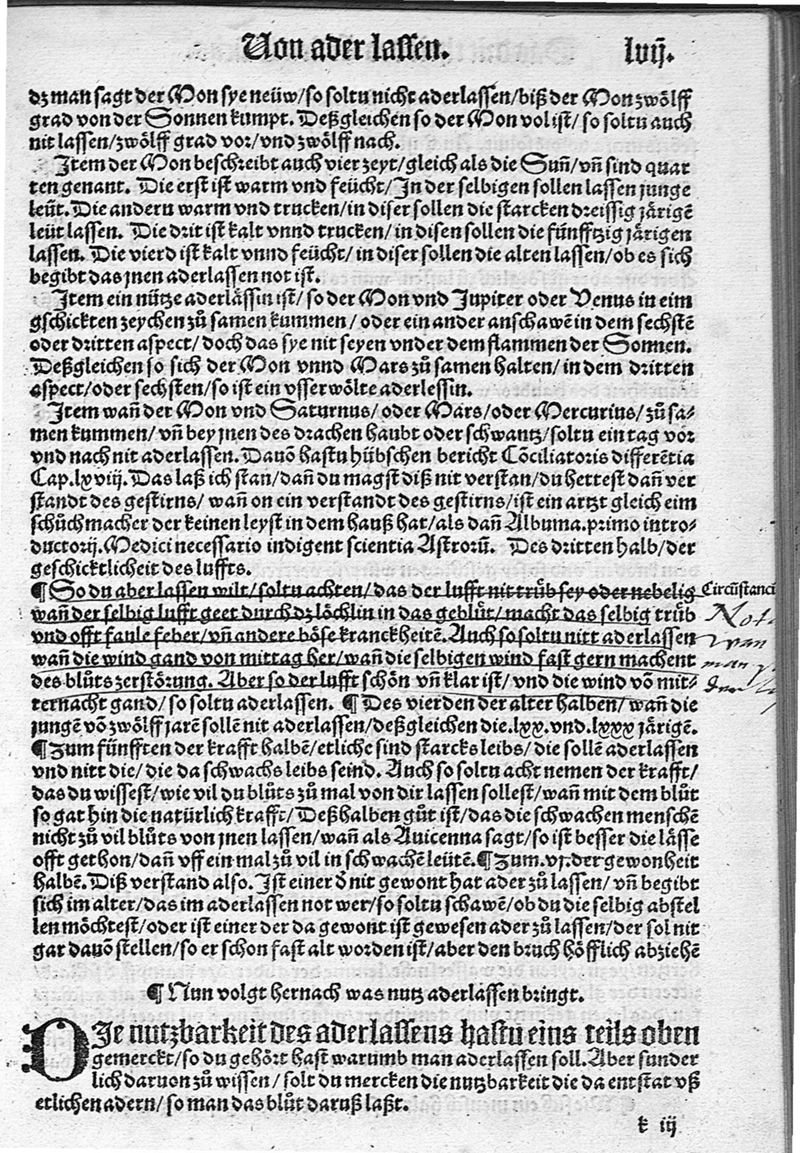 Von ader lassen. lvij.
dz man sagt der Mon sye neüw/so soltu nicht aderlassen/biß der Mon zwölff
grad von der Sonnen kumpt. Deßgleichen so der Mon vol ist/so soltu auch
nit lassen/zwölff grad vor/vnd zwölff nach.
Item der Mon beschreibt auch vier zeyt/gleich als die Suñ/vñ sind quar
ten genant. Die erst ist warm vnd feücht/In der selbigen sollen lassen junge
leüt. Die andern warm vnd trucken/in diser sollen die starcken dreissig järigẽ
leüt lassen. Die drit ist kalt vnnd trucken/in disen sollen die fünfftzig järigen
lassen. Die vierd ist kalt vnnd feücht/in diser sollen die alten lassen/ob es sich
begibt das jnen aderlassen not ist.
Item ein nütze aderlässin ist/so der Mon vnd Jupiter oder Venus in eim
gschickten zeychen zů samen kummen/oder ein ander anschawẽ in dem sechstẽ
oder dritten aspect/doch das sye nit seyen vnder dem flammen der Sonnen.
Deßgleichen so sich der Mon vnnd Mars zů samen halten/in dem dritten
aspect/oder sechsten/so ist ein vsserwölte aderlessin.
Item wañ der Mon vnd Saturnus/oder Mars/oder Mercurius/zů sa-
men kummen/vñ bey jnen des drachen haubt oder schwantz/soltu ein tag vor
vnd nach nit aderlassen. Dauõ hastu hübschen bericht Cõciliatoris differẽtia
Cap.lxviij. Das laß ich stan/dañ du magst diß nit verstan/du hettest dañ ver
standt des gestirns/wañ on ein verstandt des gestirns/ist ein artzt gleich eim
schůchmacher der keinen leyst in dem hauß hat/als dañ Albuma.primo intro-
ductorij. Medici necessario indigent scientia Astrorũ. Des dritten halb/der
geschicktlicheit des luffts.
¶ So du aber lassen wilt/soltu achten/das der lufft nit trüb sey oder nebelig
Circũstanci
wañ der selbig lufft geet durch dz löchlin in das geblůt/macht das selbig trüb
Nota
vnd offt faule feber/vñ andere böse kranckheitẽ. Auch so soltu nitt aderlassen
wan
wañ die wind gand von mittag her/wañ die selbigen wind fast gern machent
man
des blůts zerstörung. Aber so der lufft schön vñ klar ist/vnd die wind võ mit-
ternacht gand/so soltu aderlassen. ¶ Des vierden der alter halben/wañ die
jungẽ võ zwölff jarẽ sollẽ nit aderlassen/deßgleichen die.lxx.vnd.lxxx järigẽ.
¶ Zum fünfften der krafft halbẽ/etliche sind starcks leibs/die sollẽ aderlassen
vnd nitt die/die da schwachs leibs seind. Auch so soltu acht nemen der krafft/
das du wissest/wie vil du blůts zů mal von dir lassen sollest/wañ mit dem blůt
so gat hin die natürlich krafft/Deßhalben gůt ist/das die schwachen menschẽ
nicht zů vil blůts von jnen lassen/wañ als Auicenna sagt/so ist besser die lässe
offt gethon/dañ vff ein mal zů vil in schwachẽ leütẽ. ¶ Zum.vj.der gewonheit
halbẽ. Diß verstand also. Ist einer d̃ nit gewont hat ader zů lassen/vñ begibt
sich im alter/das im aderlassen not wer/so soltu schawẽ/ob du die selbig abstel
len möchtest/oder ist einer der da gewont ist gewesen ader zů lassen/der sol nit
gar dauõ stellen/so er schon fast alt worden ist/aber den bruch höfflich abziehẽ
¶ Nun volgt hernach was nutz aderlässen bringt.
DIe nutzbarkeit des aderlassens hastu eins teils oben
gemerckt/so du gehört hast warumb man aderlassen soll. Aber sunder
lich daruon zů wissen/solt du mercken die nutzbarkeit die da entstat vß
etlichen adern/so man das blůt daruß laßt.
k iij